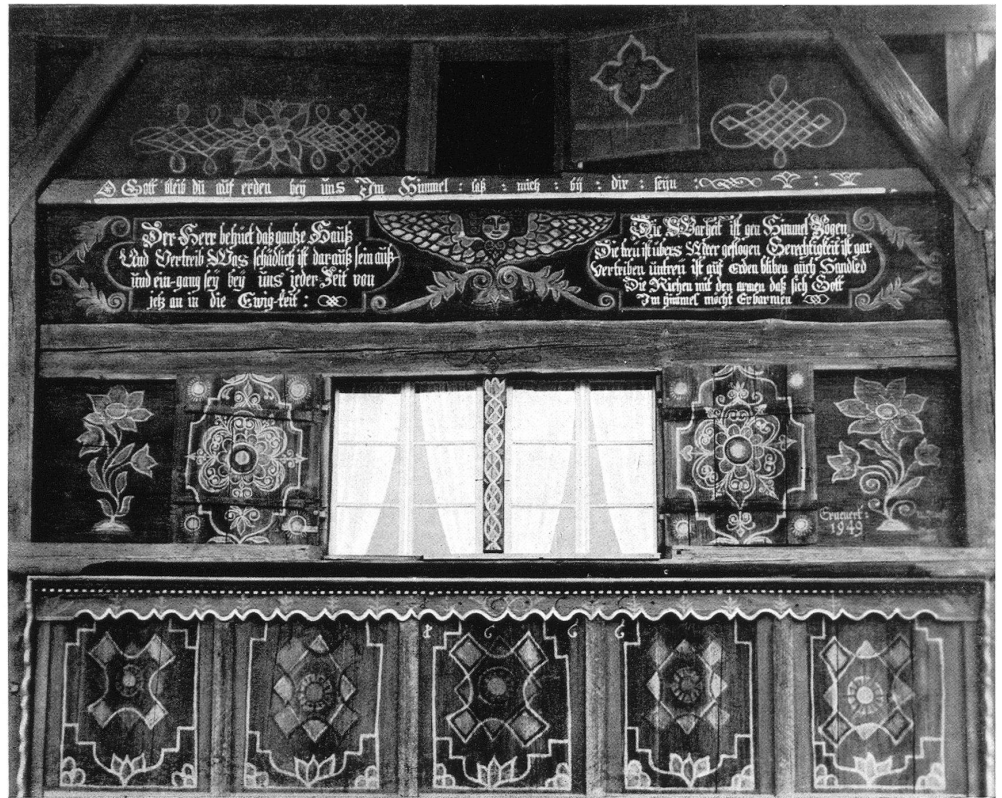 O Gott bleib dü auf erden bey üns Im Himmel : laß : mich : bÿ : dir : seÿn :
Der Herr behüet daß gantze Hauß
Und Vertreib Was schädlich ist darauß sein auß-
und ein-gang seÿ beÿ uns jeder Zeit von
jetz an in die Ewig-keit :
Die Warheit ist gen Himmel flogen
Die treü ist übers Meer gezogen Gerechtigkeit ist gar
Vertriben üntreü ist aüf erden bliben auch Handled
Die Richen mit den armen daß sich Gott
Im himmel möcht Erbarmen
Erneuert:
1949